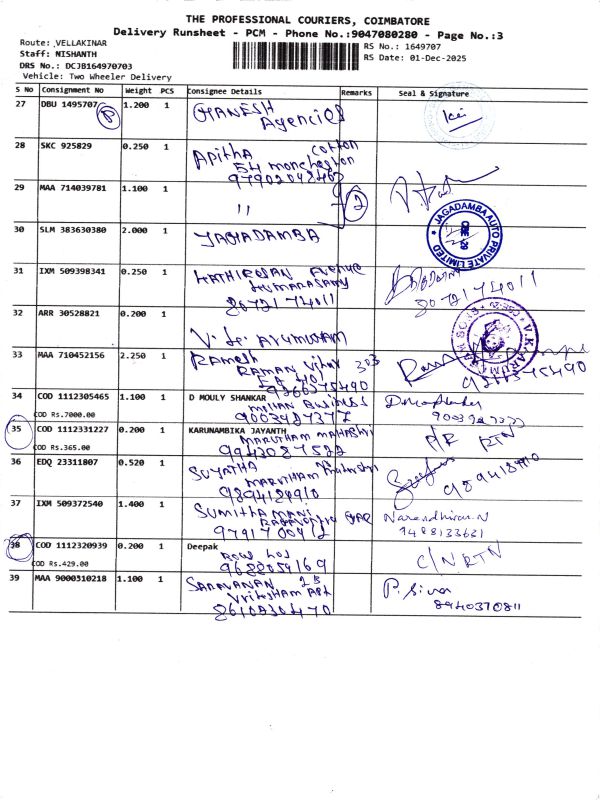 THE PROFESSIONAL COURIERS, COIMBATORE
Delivery Runsheet - PCM - Phone No.:9047080280 - Page No.:3
Route: VELLAKINAR
Staff: NISHANTH
DRS No.: DCJB164970703
Vehicle: Two Wheeler Delivery
RS No.: 1649707
RS Date: 01-Dec-2025
S No Consignment No Weight PCS Consignee Details Remarks Seal & Signature
27 DBU 1495707 8 1.200 1 GANESH Agencies
28 SKC 925829 0.250 1 Apitha Cotton
54
29 MAA 714039781 1.100 1 11 2
30 SLM 383630380 2.000 1 JAGADAMBA
JAGADAMBA AUTO PRIVATE LIMITED
CBE-29
31 IXM 509398341 0.250 1 KATHIRVAN Avenue
KUMARASAMY
8072174011 8072174011
32 ARR 30528821 0.200 1
V. K. ARUMUGAM
33 MAA 710452156 2.250 1 Ramesh
RAMAN Vihar 303
34 COD 1112305465 1.100 1 D MOULY SHANKAR
COD Rs.7000.00 Business
35 COD 1112331227 0.200 1 KARUNAMBIKA JAYANTH D/R RTN
COD Rs.365.00 MARUTHAM
9943087522
36 EDQ 23311807 0.520 1 SUJATHA
MARUTHAM
37 IXM 509372540 1.400 1 SUMITHA MANI
Narendhiran.N
9488133631
38 COD 1112320939 0.200 1 Deepak C/N RTN
COD Rs.429.00
9688059169
39 MAA 9000310218 1.100 1 SARAVANAN 2B P. Siva
8610830470 8940370811